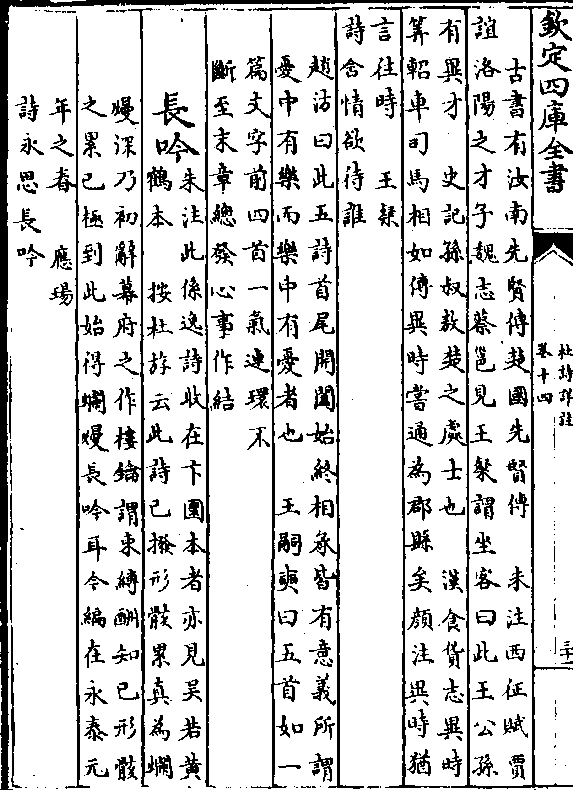 欽定四庫全書
杜詩詳註
卷十四
古書有汝南先賢傳楚國先賢傳　朱注西征賦賈
誼洛陽之才子魏志蔡邕見王粲謂坐客曰此王公孫
有異才　史記孫叔敖楚之處士也　漢食貨志異時
筭軺車司馬相如傳異時嘗通為郡縣矣顔注異時猶
言往時　王粲
詩含情欲待誰
趙汸曰此五詩首尾開闔始終相承皆有意義所謂
憂中有樂而樂中有憂者也　王嗣奭曰五首如一
篇文字前四首一氣連環不
斷至末章總發心事作結
長吟
朱注此係逸詩收在卞圜本者亦見吳若黄
鶴本　按杜斿云此詩已撥形骸累真為爛
熳深乃初辭幕府之作樓鑰謂束縛酬知已形骸
之累已極到此始得爛熳長吟耳今編在永泰元
年之春　應瑒
詩永思長吟